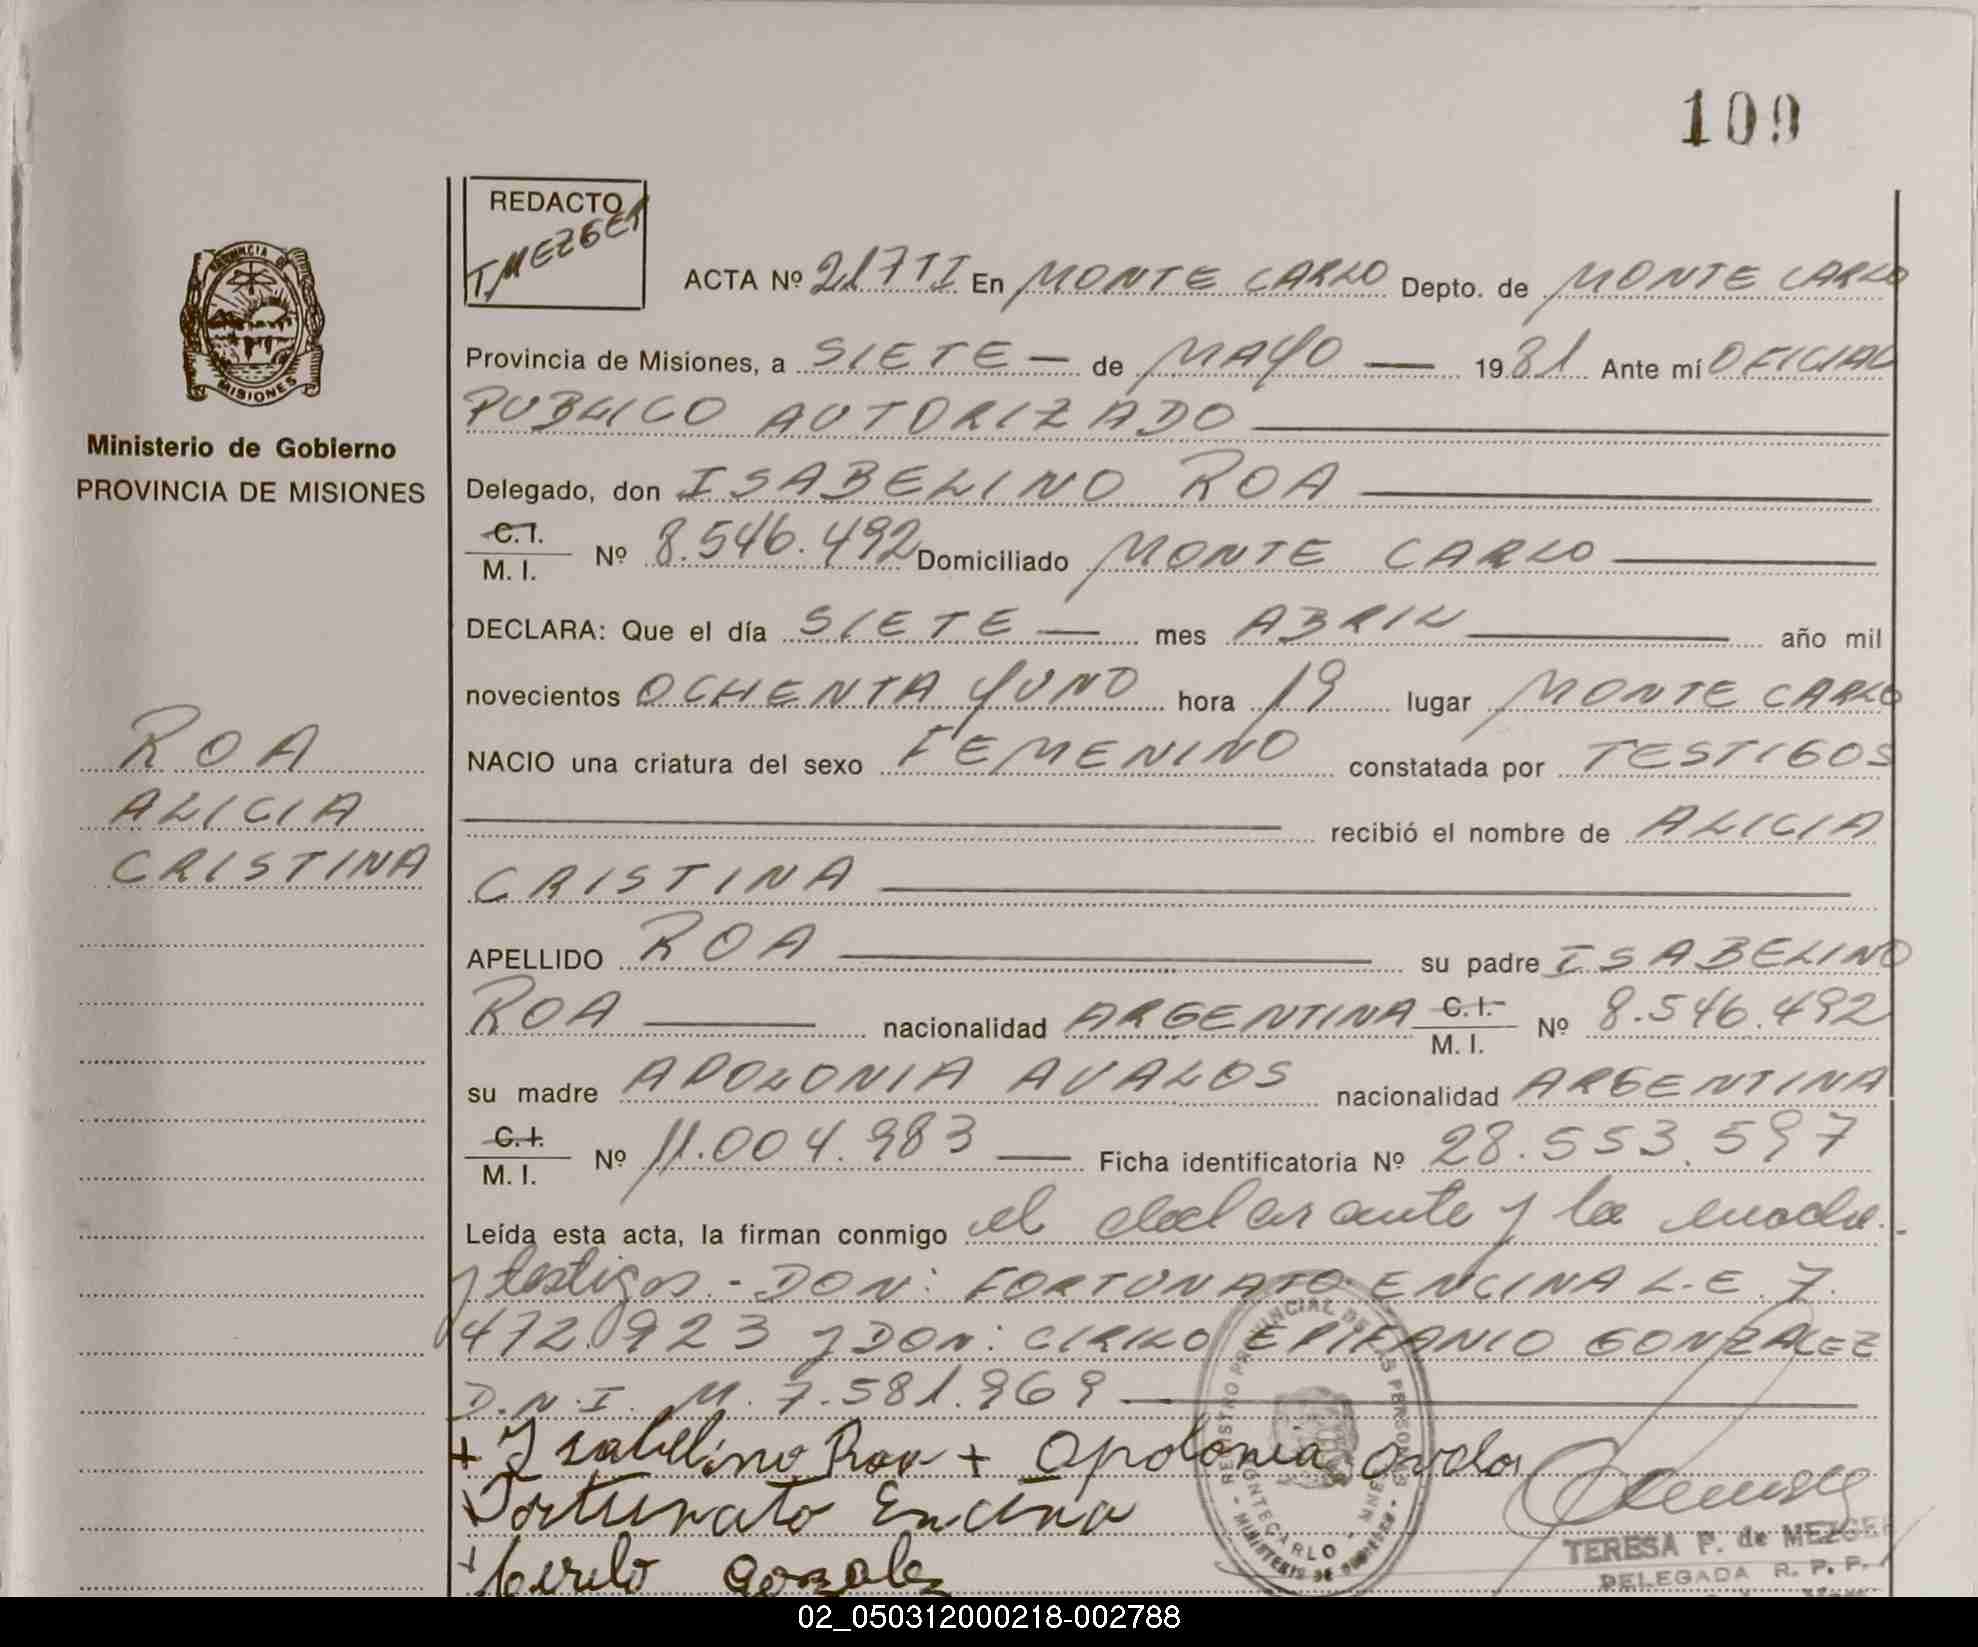 109
REDACTO
T MEZGER
ACTA Nº 217 TI En MONTE CARLO Depto. de MONTE CARLO
Provincia de Misiones, a SIETE — de MAYO — 1981 Ante mí OFICIAL
PUBLICO AUTORIZADO
PROVINCIA DE
MISIONES
Ministerio de Gobierno
PROVINCIA DE MISIONES
Delegado, don ISABELINO ROA
C.I.
M. I. Nº 8.546.492 Domiciliado MONTE CARLO
DECLARA: Que el día SIETE — mes ABRIL — año mil
novecientos OCHENTA YUNO hora 19 lugar MONTE CARLO
NACIO una criatura del sexo FEMENINO constatada por TESTIGOS
recibió el nombre de ALICIA
CRISTINA
ROA
ALICIA
CRISTINA
APELLIDO ROA — su padre ISABELINO
ROA — nacionalidad ARGENTINA C.I. M. I. Nº 8.546.492
su madre APOLONIA AVALOS nacionalidad ARGENTINA
C.I.
M. I. Nº 11.004.983 — Ficha identificatoria Nº 28.553.597
Leída esta acta, la firman conmigo el declarante y la madre.-
y testigos.- DON: FORTUNATO ENCINA L.E. 7.
472.923 y DON: CIRILO EPIFANIO GONZALEZ
D.N.I. M. 7.581.969
+ Isabelino Roa + Apolonia avalos
Fortunato Encina
+ Cirilo Gonzalez
REGISTRO PROVINCIAL DE LAS PERSONAS
MONTECARLO - MNES
- MINISTERIO DE GOBIERNO -
TERESA P. de MEZGER
DELEGADA R. P. P.
02_050312000218-002788